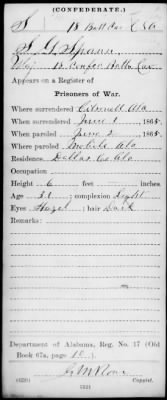 (CONFEDERATE.)
S 18 Batt Cav CSA
S. G. Spann
Maj 18 Confed Batta Cav
Appears on a Register of
Prisoners of War.
Where surrendered Citronell Ala
When surrendered June 1 1865.
When paroled June 2 1865.
Where paroled Mobile Ala
Residence Dallas Co Ala
Occupation
Height 6 feet inches
Age complexion Light
Eyes Hazel ; hair Dark
Remarks:
Department of Alabama, Reg. No. 17 (Old
Book 67a, page
Copyist.